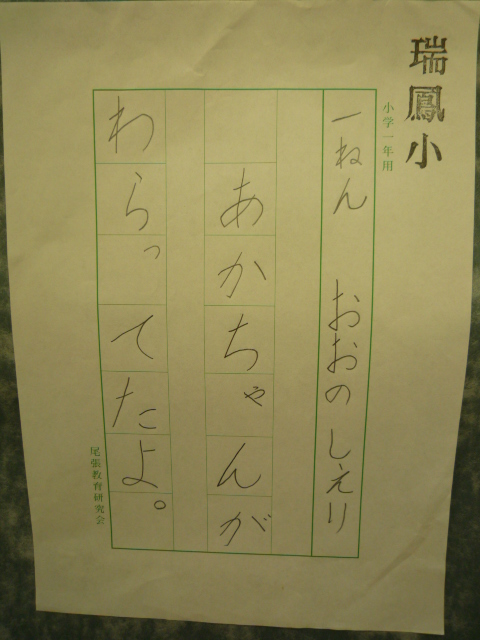 瑞鳳小
小学一年用
一ねん おおの しえり
あかちゃんが
わらってたよ。
尾張教育研究会